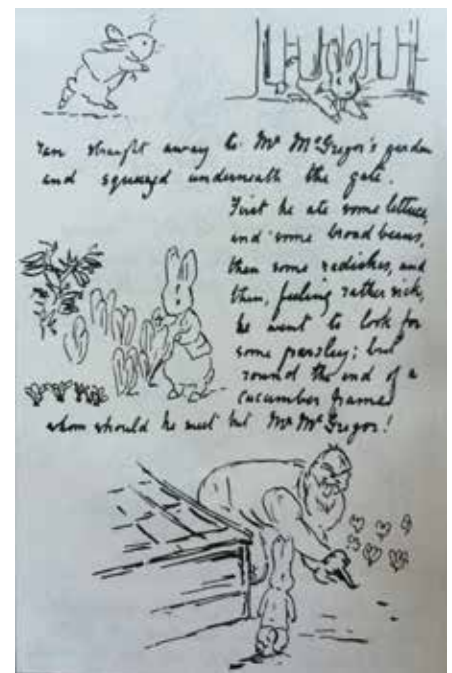 ran straight away to Mr McGregor's garden
and squeezed underneath the gate.
First he ate some lettuce,
and some broad beans,
then some radishes, and
then, feeling rather sick,
he went to look for
some parsley; but
round the end of a
cucumber frame
whom should he meet but Mr McGregor!